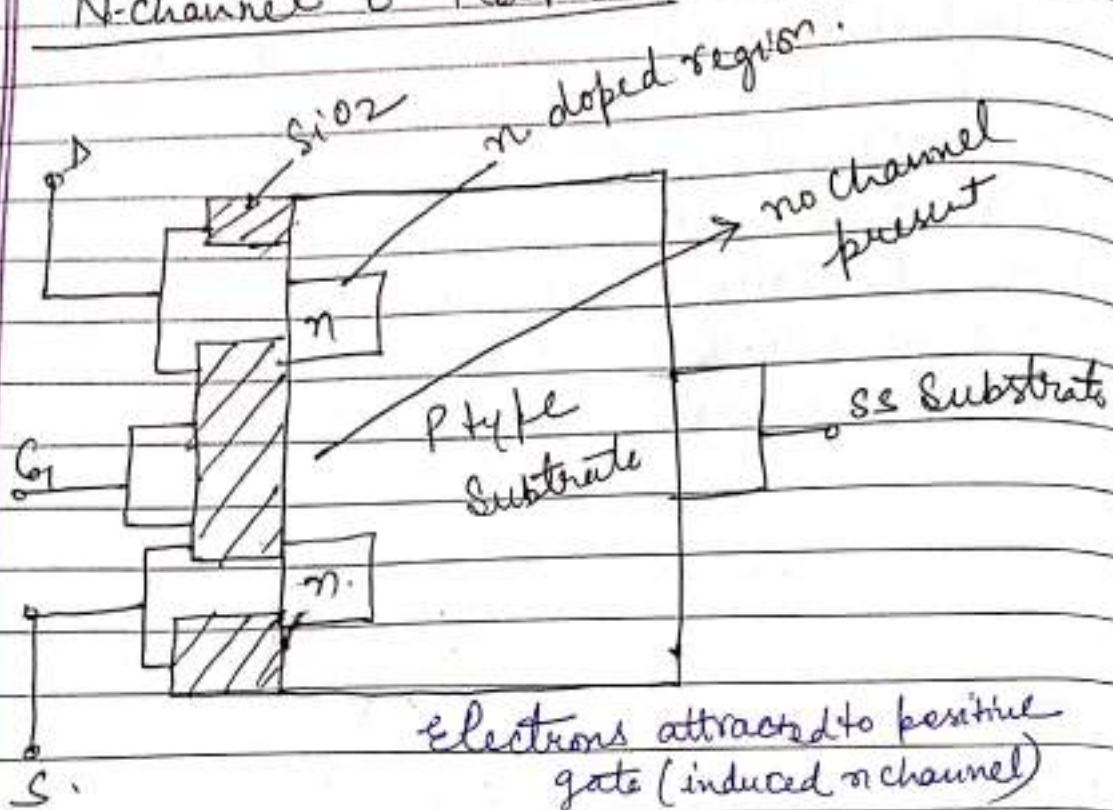 N-channel
SiO2
n doped region.
D
no channel
present
n
P type
Substrate
SS Substrate
G
n.
S.
Electrons attracted to positive
gate (induced n channel)